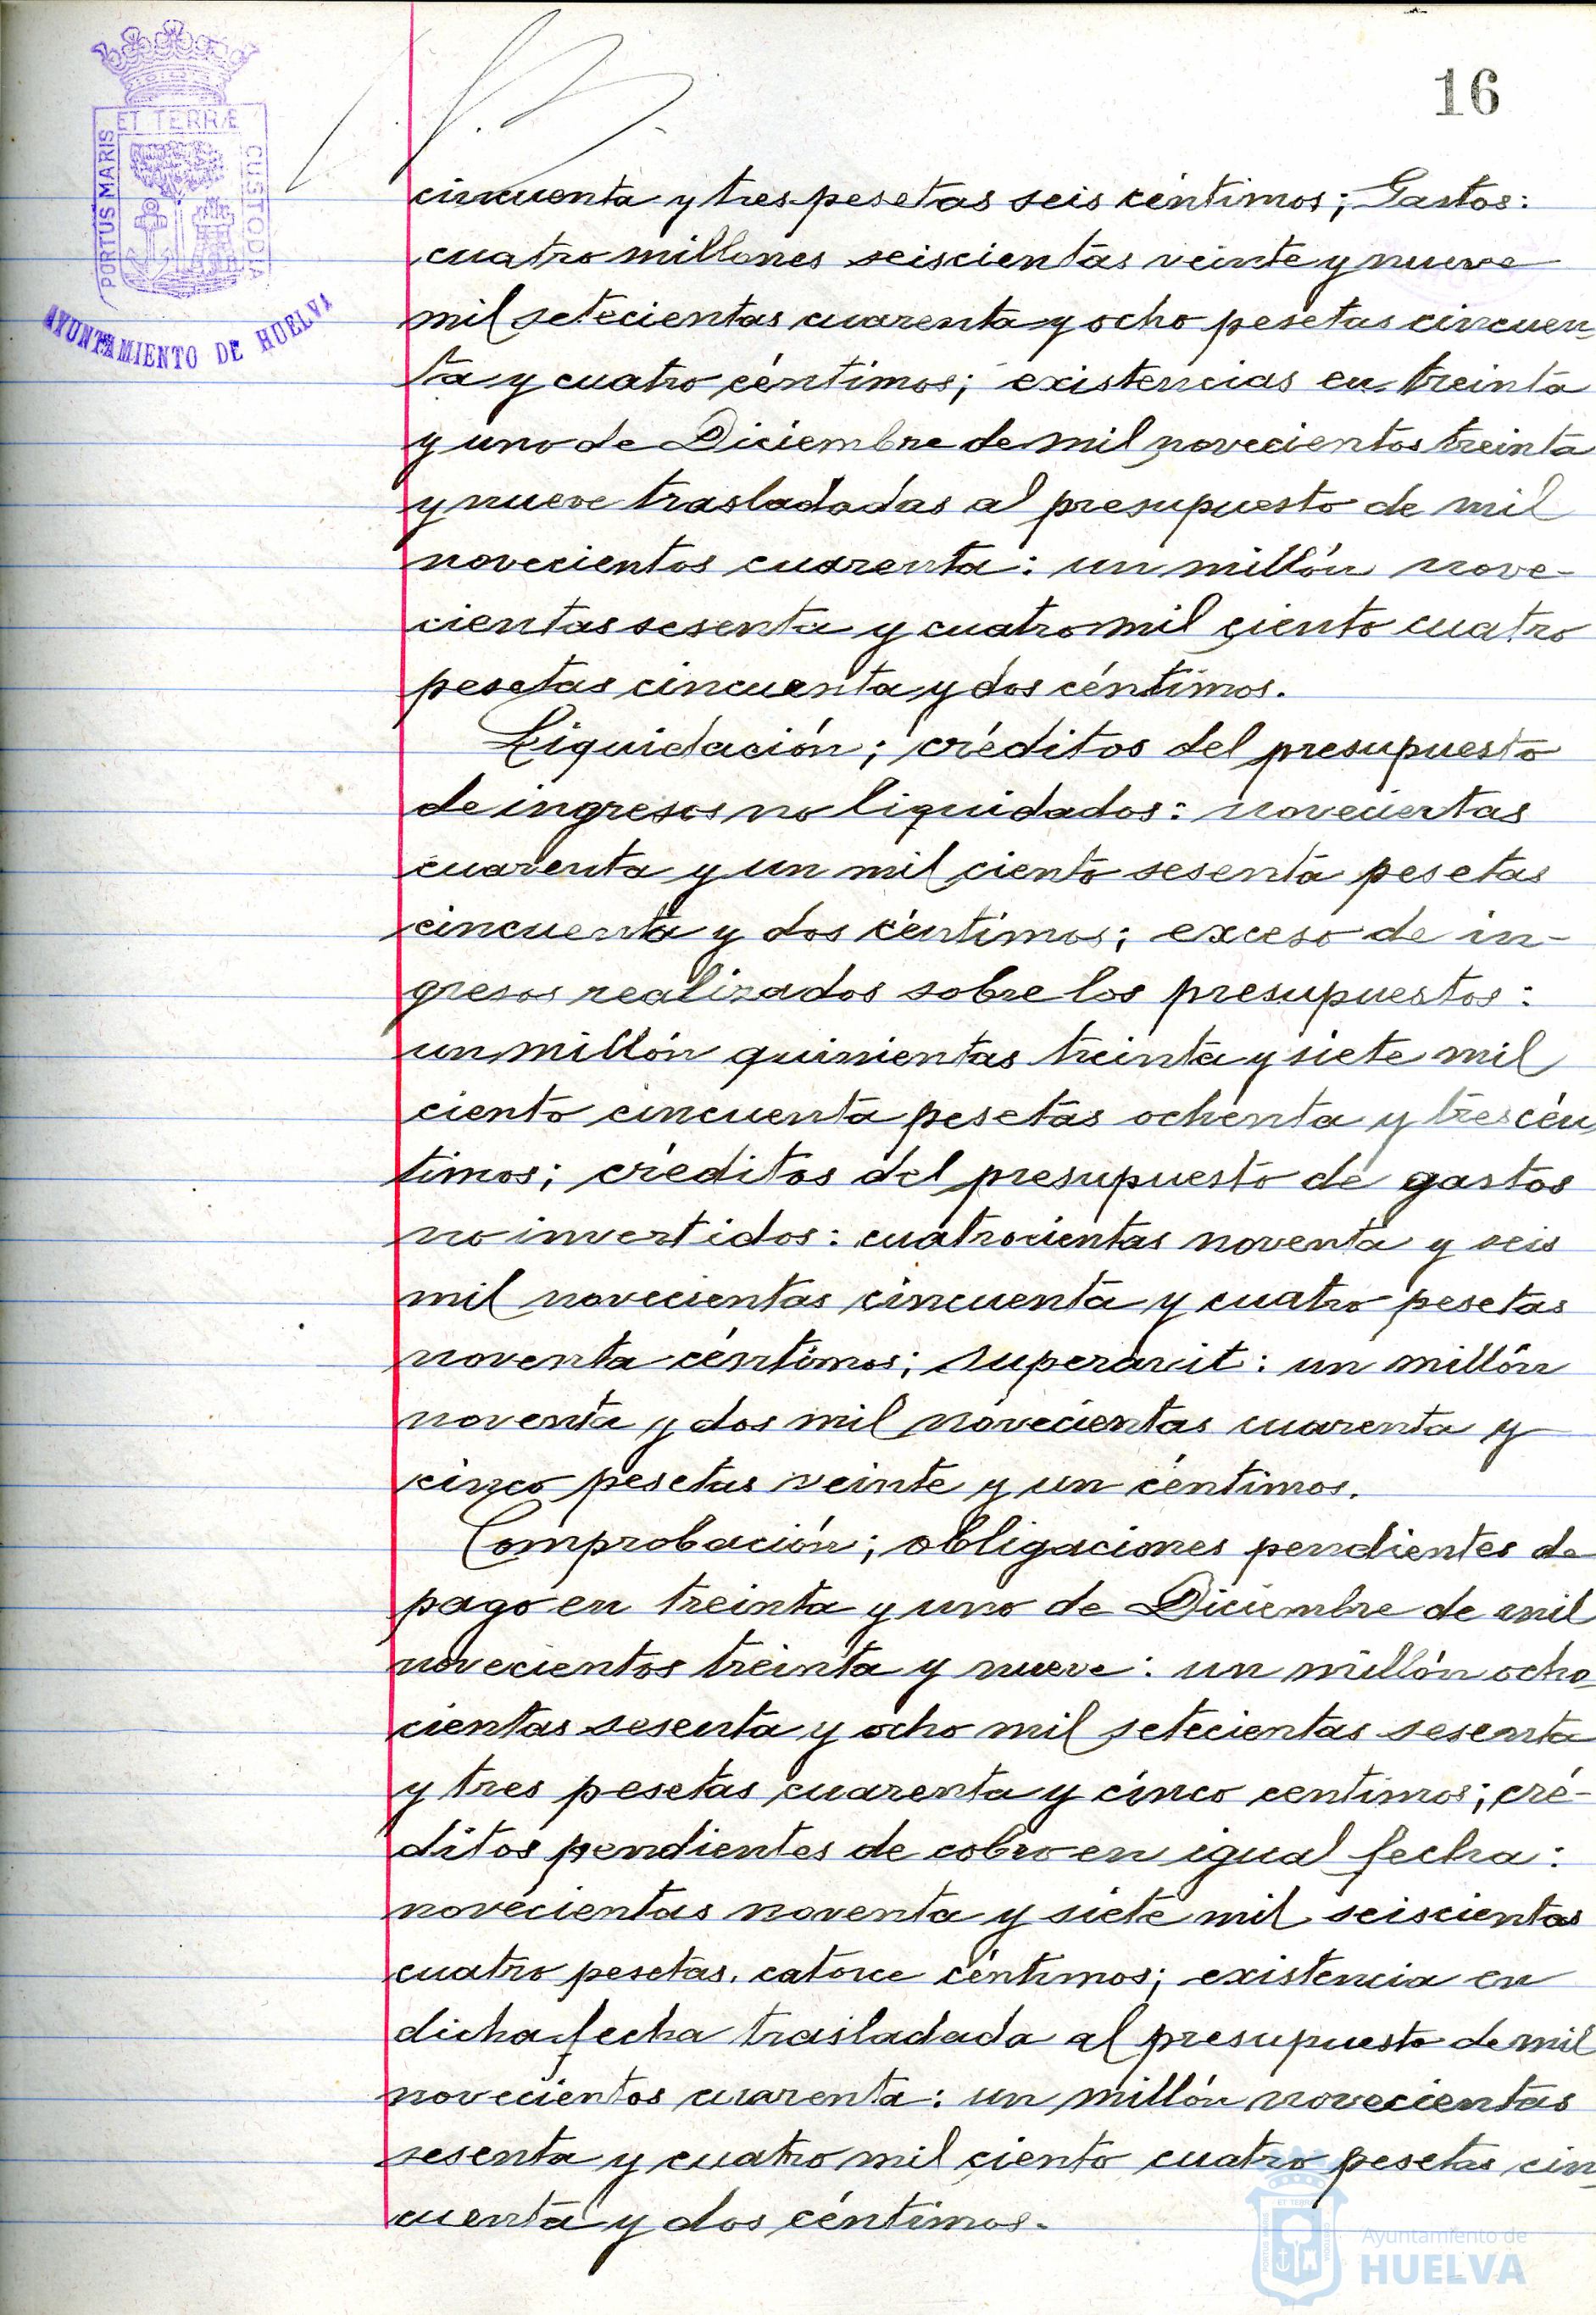 16
ET TERRÆ
PORTUS MARIS
CUSTODIA
AYUNTAMIENTO DE HUELVA
cincuenta y tres pesetas seis céntimos; Gastos:
cuatro millones seiscientas veinte y nueve
mil setecientas cuarenta y ocho pesetas cincuen-
ta y cuatro céntimos; existencias en treinta
y uno de Diciembre de mil novecientos treinta
y nueve trasladadas al presupuesto de mil
novecientos cuarenta: un millón nove-
cientas sesenta y cuatro mil ciento cuatro
pesetas cincuenta y dos céntimos.
Liquidación; créditos del presupuesto
de ingresos no liquidados: novecientas
cuarenta y un mil ciento sesenta pesetas
cincuenta y dos céntimos; exceso de in-
gresos realizados sobre los presupuestos:
un millón quinientas treinta y siete mil
ciento cincuenta pesetas ochenta y tres cén
timos; créditos del presupuesto de gastos
no invertidos: cuatrocientas noventa y seis
mil novecientas cincuenta y cuatro pesetas
noventa céntimos; superavit: un millón
noventa y dos mil novecientas cuarenta y
cinco pesetas veinte y un céntimos.
Comprobación; obligaciones pendientes de
pago en treinta y uno de Diciembre de mil
novecientos treinta y nueve: un millón ocho
cientas sesenta y ocho mil setecientas sesenta
y tres pesetas cuarenta y cinco centimos; cré-
ditos pendientes de cobro en igual fecha:
novecientas noventa y siete mil seiscientas
cuatro pesetas, catorce céntimos; existencia en
dicha fecha trasladada al presupuesto de mil
novecientos cuarenta: un millón novecientas
sesenta y cuatro mil ciento cuatro pesetas cin
cuenta y dos céntimos.
Ayuntamiento de
HUELVA